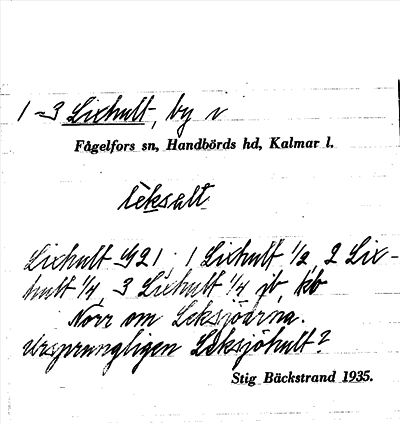 1-3 Lixhult, by i
Fågelfors sn, Handbörds hd, Kalmar l.
leksalt
Lixhult 1921; 1 Lixhult 1/2, 2 Lix-
hult 1/4, 3 Lixhult 1/4 jb, kb
Norr om Leksjöarna.
Ursprungligen Leksjöhult?
Stig Bäckstrand 1935.